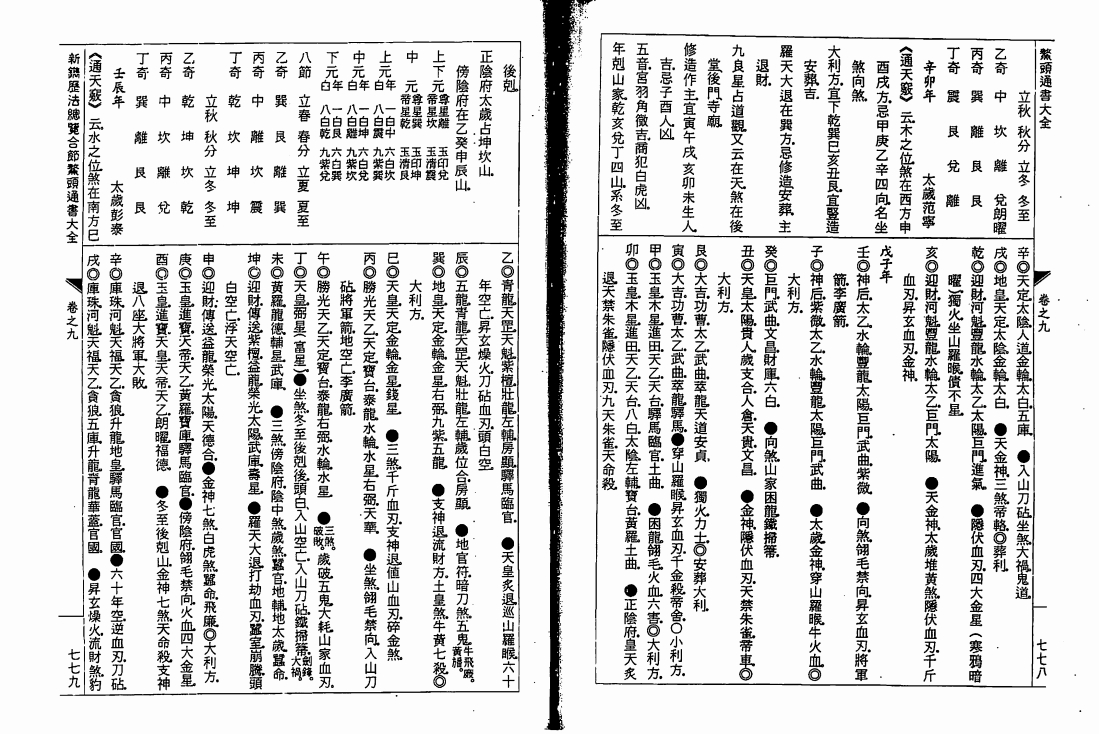 鰲頭通書大全
卷之九
七七八
立秋 秋分 立冬 冬至
乙奇 中 坎 離 兌朗曜
丙奇 巽 艮 坎 離
丁奇 震 艮 兌 離
辛卯年 太歲范寧
《通天竅》云木之位煞在西方申
酉戌方忌甲庚乙辛四向名坐
煞向煞
大利方宜下乾巽巳亥丑艮宜豎造
安葬吉
羅天大退在巽方忌修造安葬主
退財
九良星占道觀又云在天煞在後
堂後門寺廟
修造作主宜寅午戌亥卯未生人
吉忌子酉人凶
五音宮羽角徵吉商犯白虎凶
年剋山家乾亥兌丁四山系冬至
辛◎天定太陰人道金輪太白五庫●入山刀砧坐煞大禍鬼道
戌◎地皇天定太陰金輪太白●天金神三煞帝輅◎葬利
乾◎迎財河魁豐龍水輪太乙太陽巨門進氣●隱伏血刃四大金星(寒鴉暗
曜)獨火坐山羅睺債不星
亥◎迎財河魁豐龍水輪太乙巨門太陽●天金神太歲堆黃煞隱伏血刃千斤
血刃昇玄血刃金神
戊子年
壬◎神后太乙水輪豐龍太陽巨門武曲紫微●向煞翎毛禁向昇玄血刃將軍
箭李廣箭
子◎神后紫微太乙水輪豐龍太陽巨門武曲●太歲金神穿山羅睺牛火血◎
大利方
癸◎巨門武曲文昌財庫六白●向煞山家困龍鐵掃箒
丑◎天皇太陽貴人歲支合人倉天貴文昌●金神隱伏血刃天禁朱雀帝車◎
大利方
艮◎大吉功曹太乙武曲萃龍天道安貞●獨火力士◎安葬大利
寅◎大吉功曹太乙武曲萃龍驛馬●穿山羅睺昇玄血刃千金殺帝舍○小利方
甲◎玉皇木星進田天乙天台驛馬臨官土曲●困龍翎毛火血六害◎大利方
卯◎玉皇木星進田天乙天台八白太陰左輔寶台黃羅土曲●正陰府皇天炙
退天禁朱雀隱伏血刃九天朱雀天命殺
後剋
正陰府太歲占坤坎山
傍陰府在乙癸申辰山
上下元 尊星離 玉印兌
帝星坎 玉清震
中元 尊星巽 玉印坤
帝星乾 玉清艮
上元年 一白中 六白坎
白 八白震 九紫巽
中元年 一白坤 六白兌
白 八白離 九紫坎
下元年 一白艮 六白巽
白 八白乾 九紫兌
八節 立春 春分 立夏 夏至
乙奇 巽 艮 離 巽
丙奇 中 離 坎 震
丁奇 乾 坎 坤 坤
立秋 秋分 立冬 冬至
乙奇 乾 坤 坎 乾
丙奇 中 坎 離 兌
丁奇 巽 離 艮 艮
壬辰年 太歲彭泰
《通天竅》云水之位煞在南方巳
乙◎青龍天罡天魁紫檀壯龍左輔房顯驛馬臨官●天皇炙退巡山羅睺六十
年空亡昇玄燥火刀砧血刃頭白空
辰◎五龍青龍天罡天魁壯龍左輔歲位合房顯●地官符暗刀煞五鬼牛飛廉黃旛
巽◎地皇天定金輪金星右弼九紫五龍●支神退流財方土皇煞牛黃七殺◎
大利方
巳◎天皇天定金輪金星錢星●三煞千斤血刃支神退値山血刃碎金煞
丙◎勝光天乙天定寶台泰龍水輪水星右弼天華●坐煞翎毛禁向入山刀
砧將軍箭地空亡李廣箭
午◎勝光天乙天定寶台泰龍右弼水輪水星●三煞破敗歲破五鬼大耗山家血刃
丁◎天皇弼星(富星)●坐煞冬至後剋後頭白入山空亡入山刀砧鐵掃箒劍鋒大禍
未◎黃羅龍德輔星武庫●三煞傍陰府陰中煞歲煞蠶官地輔地太歲蠶命
坤◎迎財傳送紫檀益龍榮光太陽武庫壽星●羅天大退打劫血刃蠶室崩騰頭
白空亡浮天空亡
申◎迎財傳送益龍榮光太陽天德合●金神七煞白虎煞蠶命飛廉◎大利方
庚◎玉皇進寶天帝天乙黃羅寶庫驛馬臨官●傍陰府翎毛禁向火血四大金星
酉◎玉皇進寶天皇天帝天乙朗曜福德●冬至後剋山金神七煞天命殺支神
退八座大將軍大敗
辛◎庫珠河魁天福天乙貪狼升龍地皇驛馬臨官官國●六十年空逆血刃刀砧
戌◎庫珠河魁天福天乙貪狼五庫升龍青龍華蓋官國●昇玄燥火流財煞豹
新鐫歷法總覽合節鰲頭通書大全
卷之九
七七九